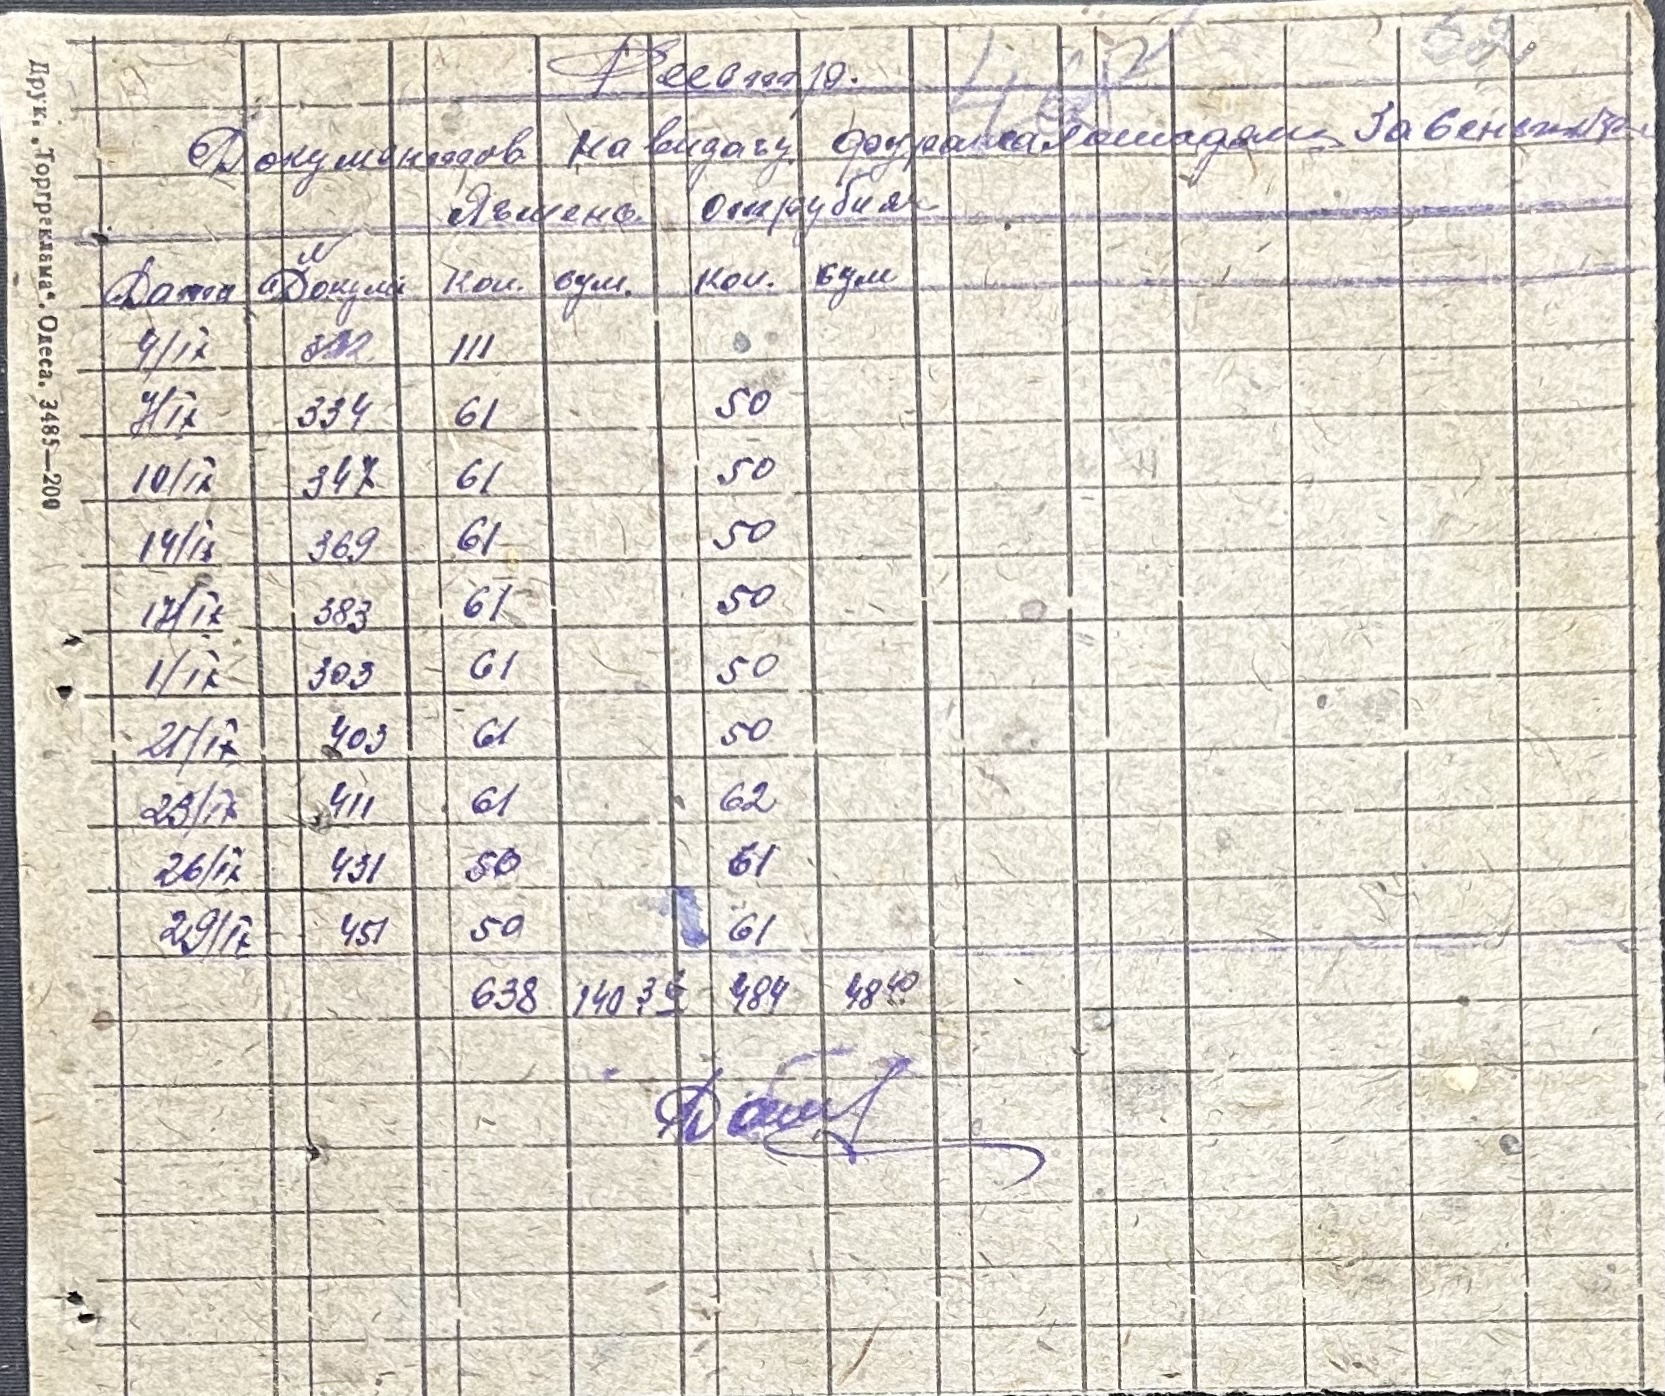 Друк. „Торгреклама“. Одеса. 3485—200
Реестр.
Документов на видачу фуража лошадям за Сентябрь
Ячмень отрубия
Дата № Докум. Кол. сум. Кол. сум
4/IX 111
7/IX 334 61 50
10/IX 347 61 50
14/IX 369 61 50
17/IX 383 61 50
1/IX 303 61 50
21/IX 403 61 50
23/IX 411 61 62
26/IX 431 50 61
29/IX 451 50 61
638 140 36 484 48 40